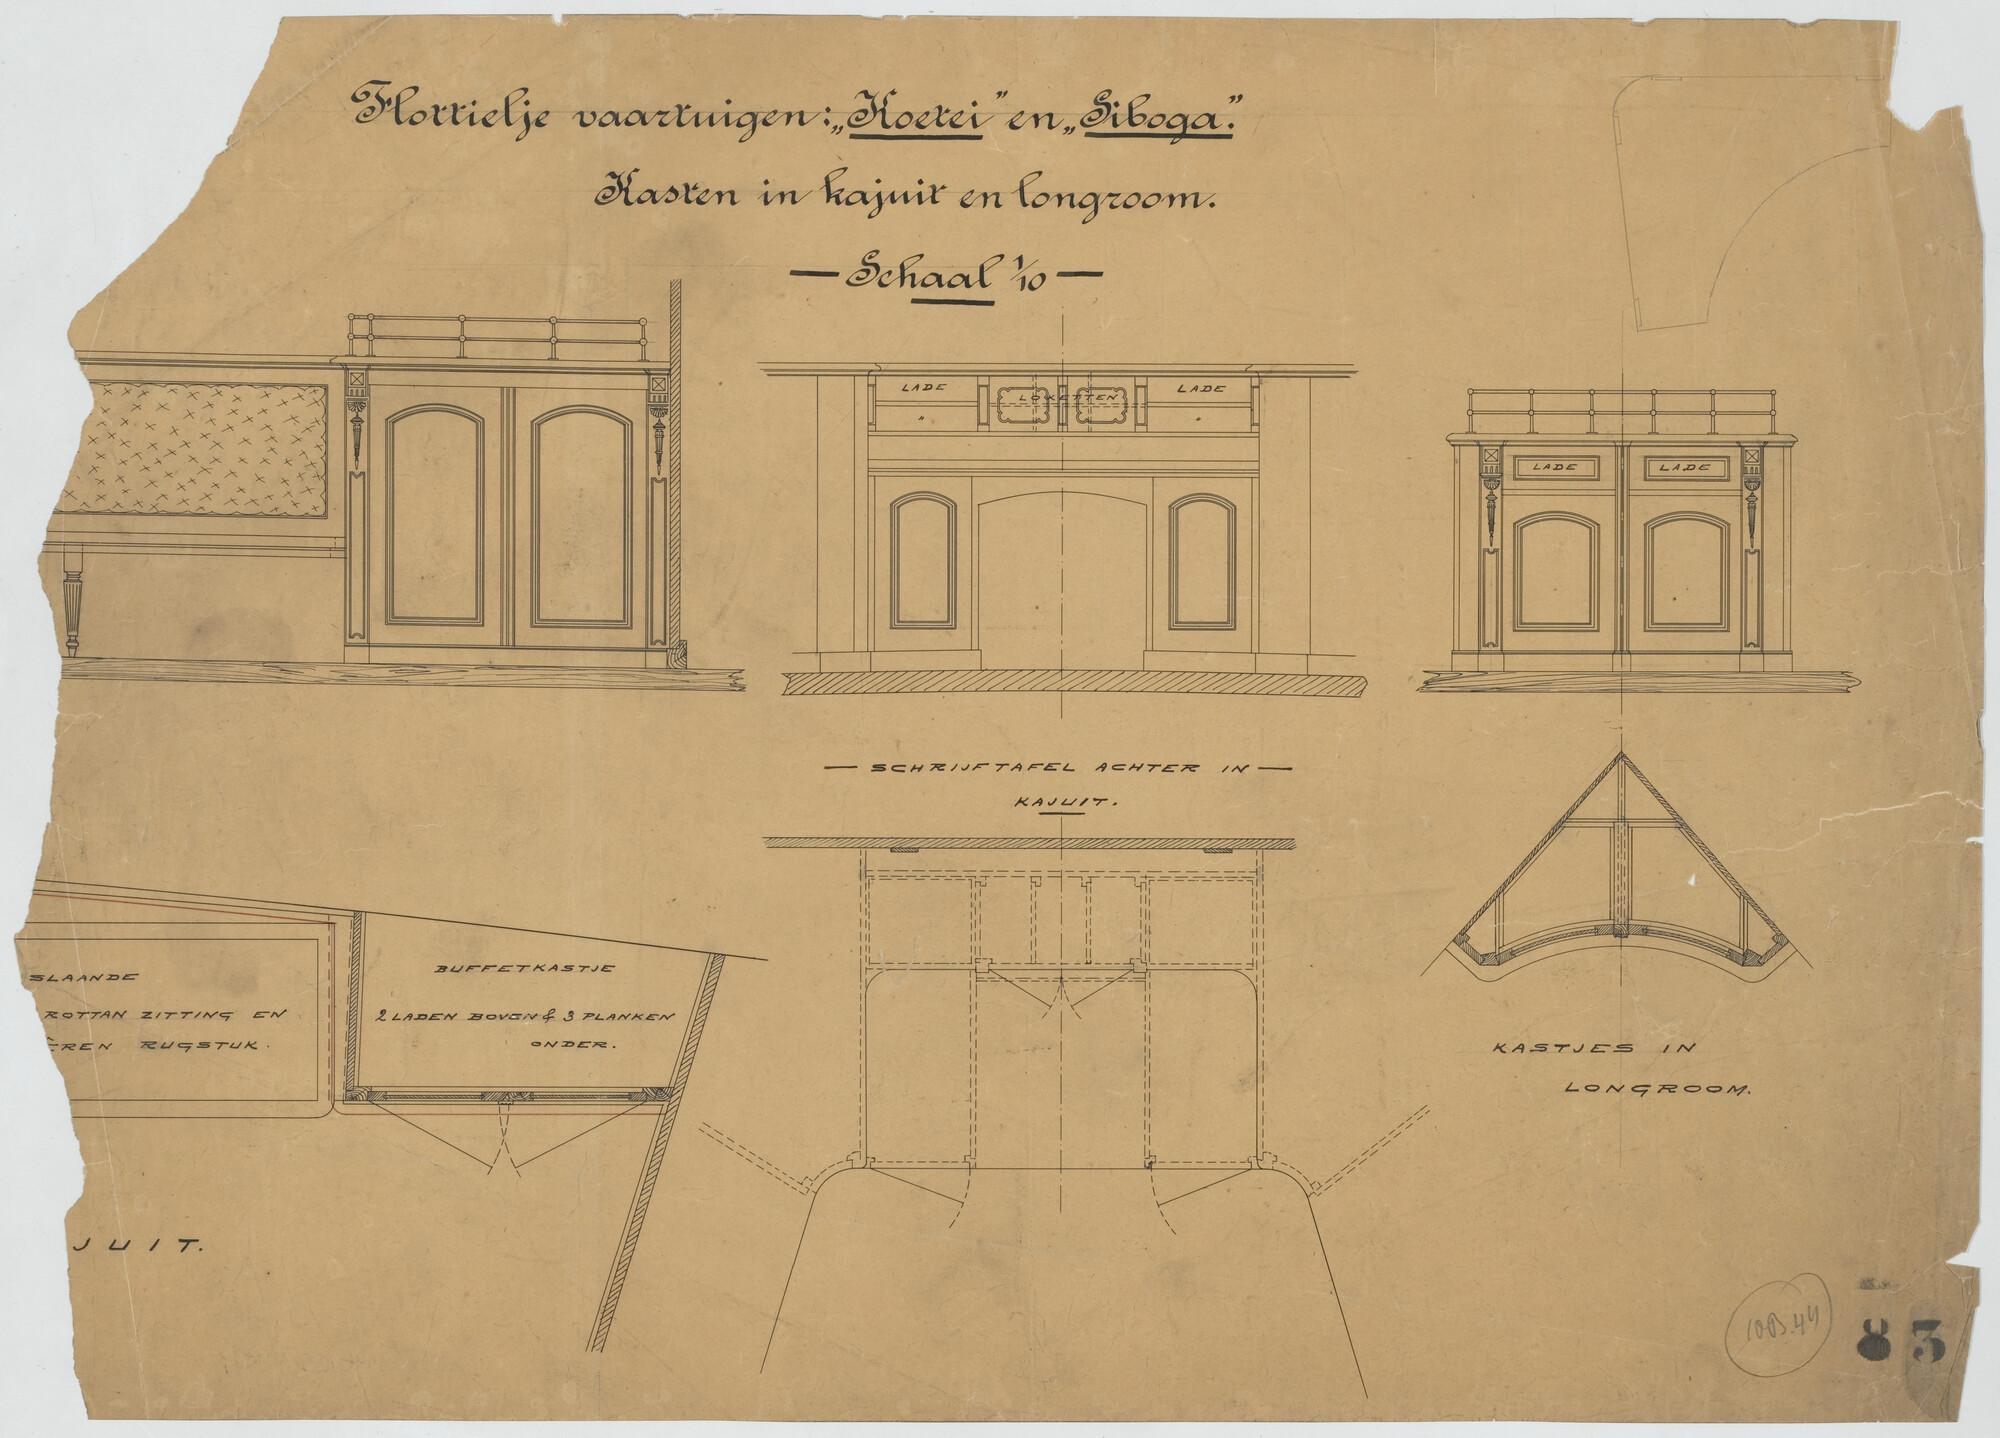 Flottielje vaartuigen: „Koetei” en „Siboga”.
Kasten in kajuit en longroom.
— Schaal 1/10 —
LADE
LOKETTEN
LADE
"
"
LADE
LADE
— SCHRIJFTAFEL ACHTER IN —
KAJUIT.
SLAANDE
ROTTAN ZITTING EN
EREN RUGSTUK.
BUFFETKASTJE
2 LADEN BOVEN & 3 PLANKEN
ONDER.
KASTJES IN
LONGROOM.
JUIT.
83